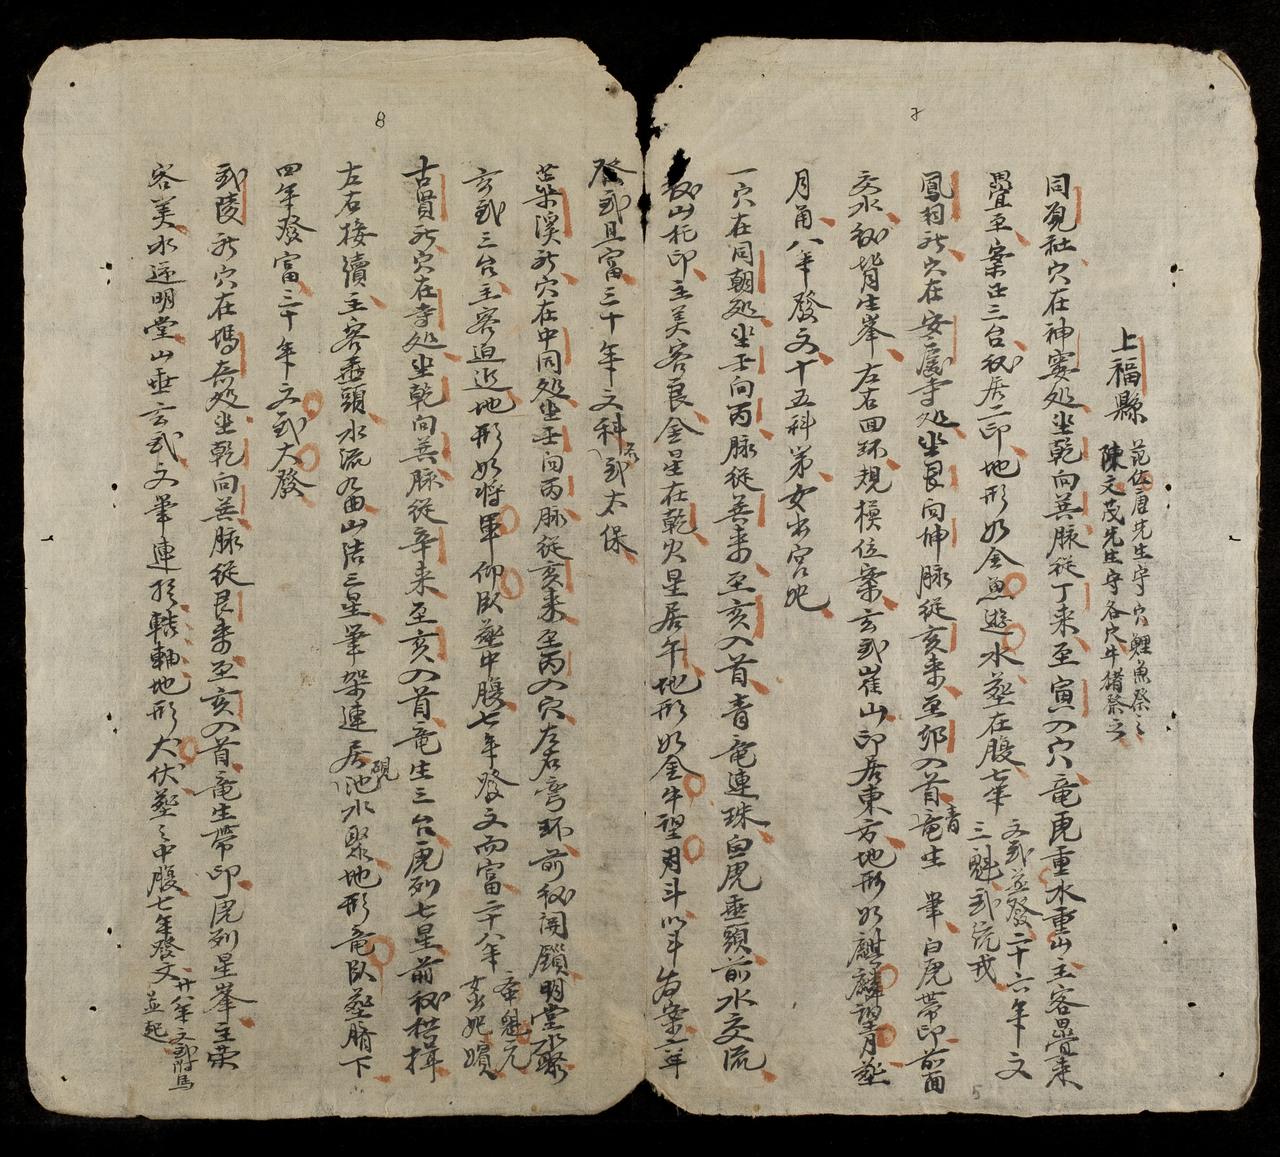 上福縣
范佐唐先生守穴鯉魚祭之
陳文茂先生守各穴牛猪祭之
同覓社穴在神處処坐乾向巽脉從丁来至寅入穴竜虎重水重山主客疊来
疊至案正三台秘居二印地形如金魚遊水塟在腹七年文武並發二十六年文
三魁武
鳳翔社穴在安慶寺処坐艮向坤脉從亥来至卯入首青竜生筆白虎帶印前面
交水秘背生峯左右回环規模位案玄武崔山印居東方地形如麒麟望月塟
月角八年發文十五科第女出宮妃
一穴在同朝処坐壬向丙脉從巽来至亥入首青竜連珠白虎垂頭前水交流
秘山托印主美客良金星在乾火星居午地形如金牛望月斗以斗為案二年
發武且富三十年文科武太保
溪社穴在中同処坐壬向丙脉從亥来至丙入穴左右弯环前秘関鎖明堂水聚
玄武三台主客迫近地形如將軍仰臥塟中腹七年發文而富二十八年魁元
女出妃嬪
古賢社穴在寺処坐乾向巽脉從辛来至亥入首竜生三台虎列七星前秘拱揖
左右接續主客垂頭水流九曲山結三星筆架連居硯池水聚地形竜臥塟臍下
四年發富三十年文武大發
武陵社穴在塢処坐乾向巽脉從艮来至亥入首竜生帶印虎列星峯主荣
客美水遶明堂山垂玄武文筆連形轄軸地形犬伏塟之中腹七年發文
廿八年文武駙馬
並起
8